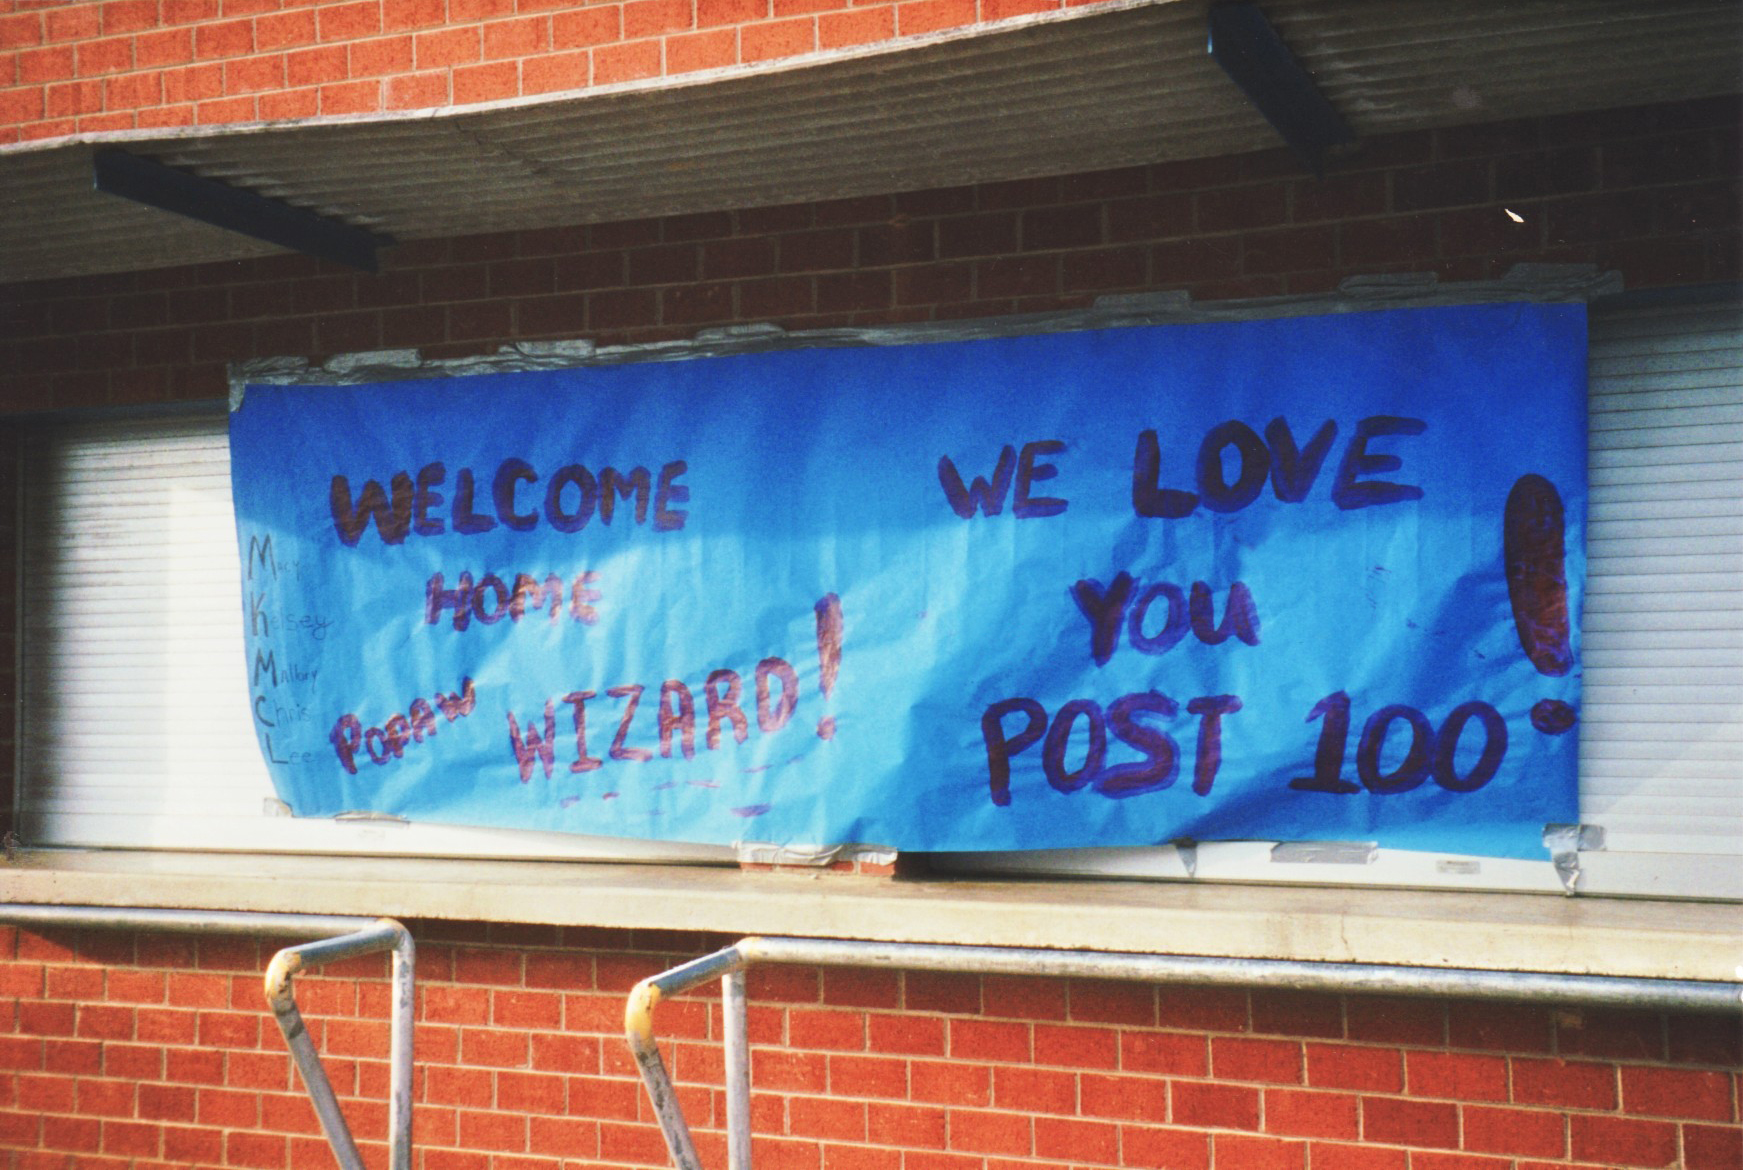 WELCOME
HOME
POPAW WIZARD!
Macy
Kelsey
Mallory
Chris
Lee
WE LOVE
YOU
POST 100!